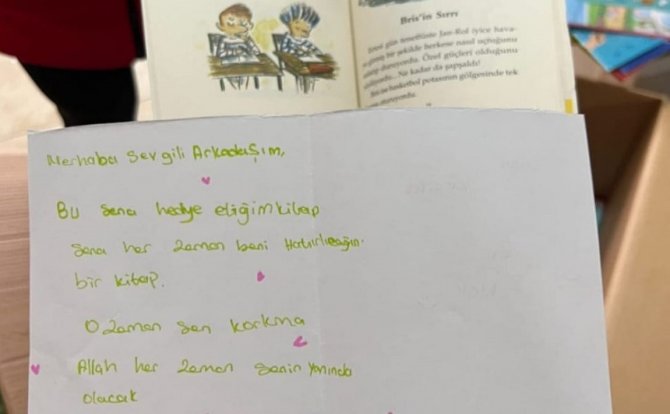 Bris'in Sırrı
Ertesi gün teneffüste Jan-Rol iyice hava-
bir şekilde herkese nasıl uçtuğunu
duruyordu. Özel güçleri olduğunu
Ne kadar da şapşaldı!
basketbol potasının gölgesinde tek
Merhaba Sevgili Arkadaşım,
Bu sana hedye etiğim kitap
Sana her zaman beni Hatırlıcağın
bir kitap.
O zaman sen korkma
Allah her zaman senin yanında
olacak